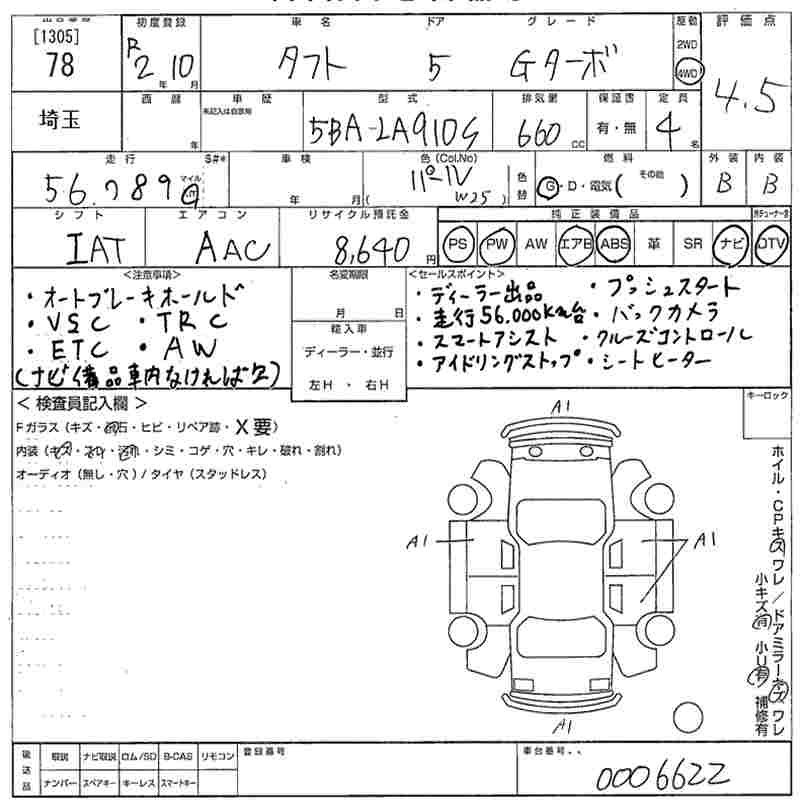 [1305]
78
初度登録
R 2 年 10 月
車名
タフト
ドア
5
グレード
Gターボ
駆動
2WD
4WD
評価点
4.5
埼玉
西暦
年
車歴
未記入は自家用
型式
5BA-LA910S
排気量
660 CC
保証書
有・無
定員
4 名
走行
56,789
マイル
S#*
車検
年 月
色(Col.No)
パールV
( W25 )
色替
燃料
G・D・電気( その他 )
外装
B
内装
B
シフト
IAT
エアコン
AAC
リサイクル預託金
8,640 円
純正装備品
PS PW AW エアB ABS 革 SR ナビ
DTV
<注意事項>
・オートブレーキホールド
・VSC ・TRC
・ETC ・AW
(ナビ備品車内なければ欠)
名変期限
月 日
輸入車
ディーラー・並行
左H ・ 右H
<セールスポイント>
・ディーラー出品 ・プッシュスタート
・走行56.000km台 ・バックカメラ
・スマートアシスト ・クルーズコントロール
・アイドリングストップ ・シートヒーター
< 検査員記入欄 >
Fガラス(キズ・飛石・ヒビ・リペア跡・X要)
内装(キズ・スレ・汚れ・シミ・コゲ・穴・キレ・破れ・割れ)
オーディオ(無し・穴)/タイヤ(スタッドレス)
A1
A1
A1
A1
キーロック
ホイル・CPキズ ワレ / ドアミラーキズ ワレ
小キズ有 小U有 補修有
後送品
取説 ナビ取説 ロム/SD B-CAS リモコン
ナンバー スペアキー キーレス スマートキー
登録番号
車台番号
0006622